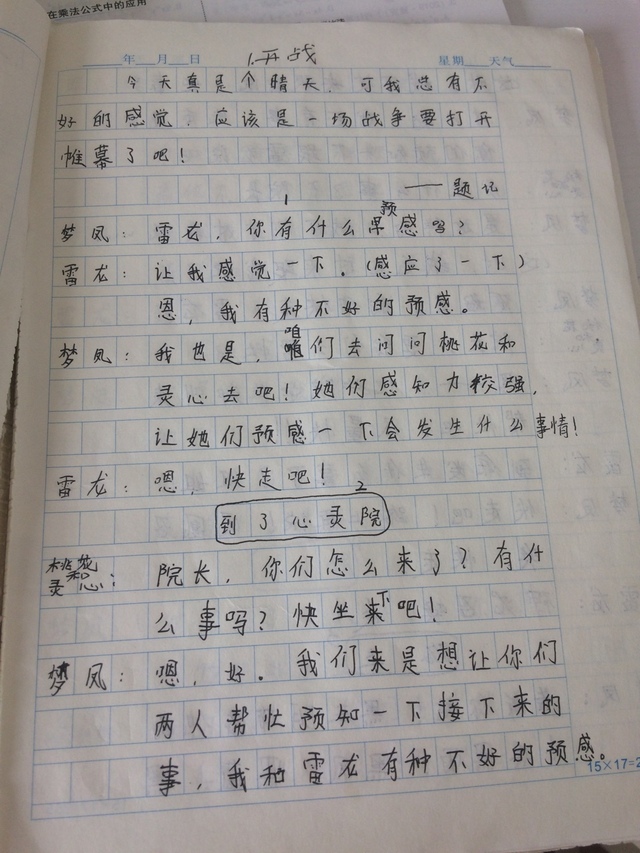 在乘法公式中的应用
年 月 日 1.开战 星期 天气
今天真是个晴天，可我总有不
好的感觉，应该是一场战争要打开
帷幕了吧！
——题记
1
梦凤：雷龙，你有什么预感吗？
雷龙：让我感觉一下。（感应了一下）
恩，我有种不好的预感。
梦凤：我也是，咱们去问问桃花和
灵心去吧！她们感知力较强，
让她们预感一下会发生什么事情！
雷龙：嗯，快走吧！
2
到了心灵院
桃花和灵心：院长，你们怎么来了？有什
么事吗？快坐下吧！
梦凤：嗯，好。我们来是想让你们
两人帮忙预知一下接下来的
事，我和雷龙有种不好的预感。
15×17=2